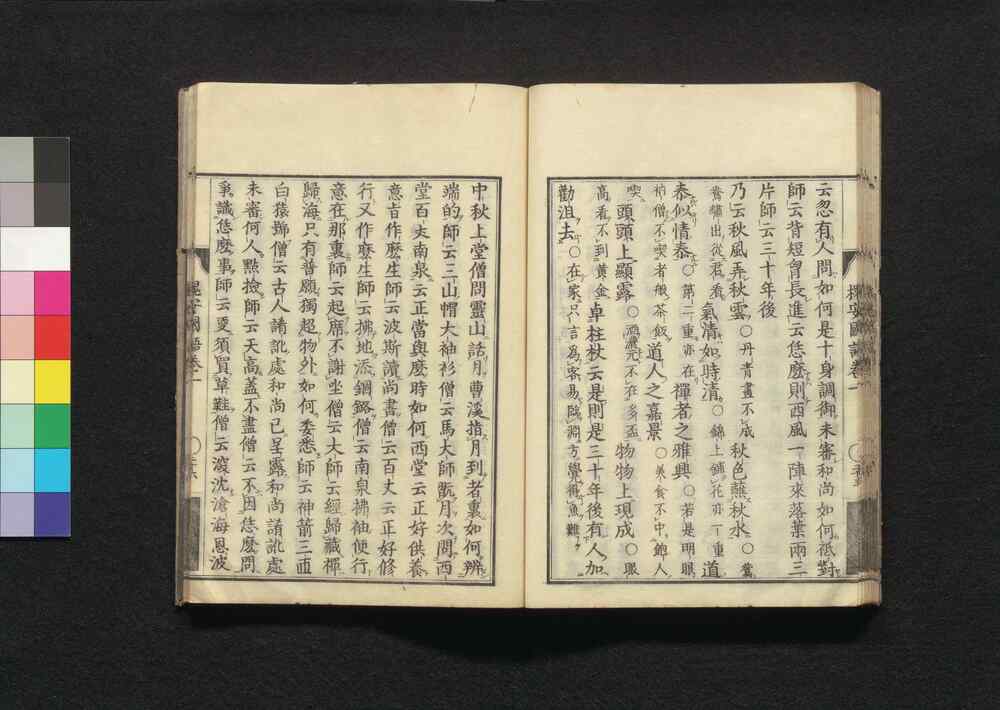 云忽有人問如何是十身調御未審和尚如何祗對
師云背短胷長進云恁麽則西風一陣來落葉兩三
片師云三十年後
乃云秋風弄秋雲○丹青畫不成 秋色蘸秋水○鴛
鴦繡出從君看 氣清如時清○錦上鋪花亦一重 道
泰似情泰○第二重亦在 禪者之雅興○若是明眼
衲僧不喫者般茶飯 道人之嘉景○美食不中飽人
喫 頭頭上顯露○酒瀝元不在多盃 物物上現成○眼
高看不到黄金 卓柱杖云是則是三十年後有人加
勸沮去○在家只言爲客易臨淵方覺得魚難
槐安國語卷一
中秋上堂僧問靈山話月曹溪指月到者裏如何辨
端的師云三山帽大袖衫僧云馬大師翫月次問西
堂百丈南泉云正當與麽時如何西堂云正好供養
意旨作麽生師云波斯讀尚書僧云百丈云正好修
行又作麽生師云拂地添鋼鉻僧云南泉拂袖便行
意在那裏師云起席不謝坐僧云大師云經歸藏禪
歸海只有普願獨超物外如何委悉師云神箭三面
白猿號僧云古人誵訛處和尚已呈露和尚誵訛處
未審何人㸃撿師云天高蓋不盡僧云不因恁麽問
爭識恁麽事師云更須買草鞋僧云深沈滄海恩波
槐安國語卷一